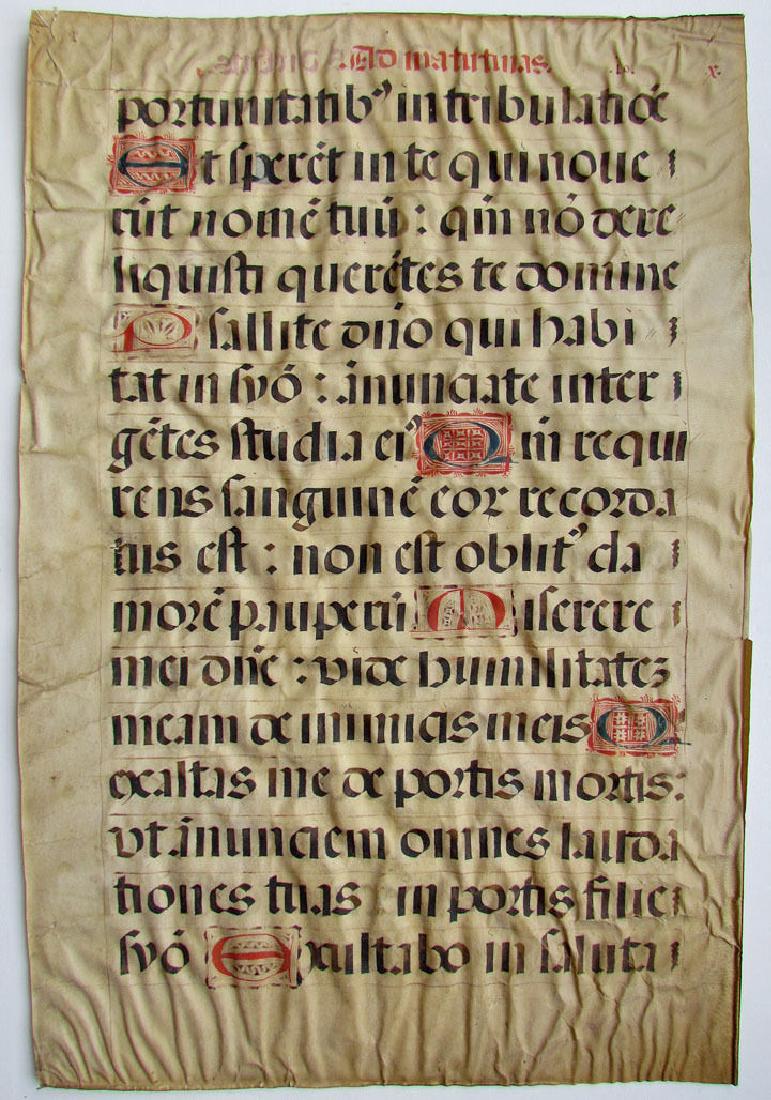 Ad matutinas. x.
portunitatib⁹ in tribulatiōe
Et sperēt in te qui noue
rūt nomē tuū : qm̄ nō dere
liquisti querētes te domine
Psallite dn̄o qui habi
tat in syō : ānunciate inter
gētes studia ei⁹ Qm̄ requi
rens sanguinē eor recorda
tus est : non est oblit⁹ cla
morē pauperū Miserere
mei dn̄e : vide humilitatez
meam de inimicis meis Q
exaltas me de portis mortis :
vt ānunciem omnes lauda
tiones tuas in portis filie
syō Exultabo in saluta